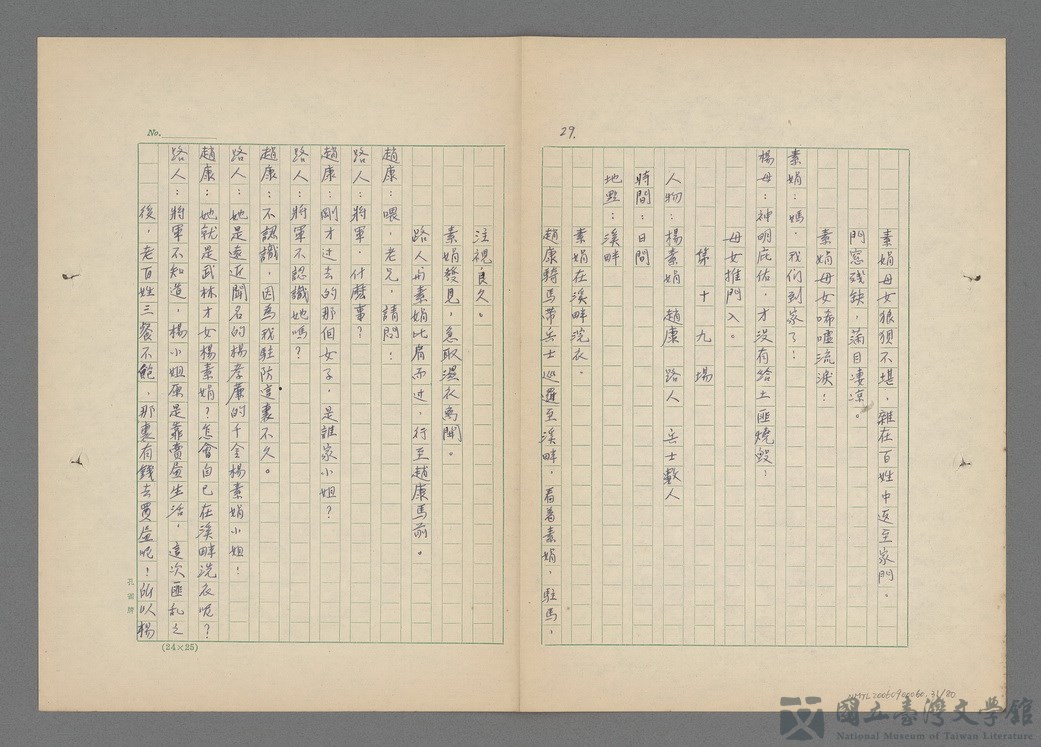 29.
素娟母女狼狽不堪，雜在百姓中返至家門。
門窓殘缺，滿目凄凉。
素娟母女唏噓流淚！
素娟：媽，我们到家了！
楊母：神明庇佑，才没有給土匪燒毀！
母女推門入。
第十九場
人物：楊素娟 趙康 路人 兵士數人
時間：日間
地點：溪畔
素娟在溪畔洗衣。
趙康騎馬帶兵士巡邏至溪畔，看着素娟，駐馬，
No.
注視良久。
素娟發見，急取濕衣离開。
路人甫素娟比肩而过，行至趙康馬前。
趙康：喂，老兄，請問！
路人：將軍，什麽事？
趙康：剛才过去的那個女子，是誰家小姐？
路人：將軍不認識她嗎？
趙康：不認識，因為我駐防這裏不久。
路人：她是遠近聞名的楊孝廉的千金楊素娟小姐！
趙康：她就是武林才女楊素娟？怎會自己在溪畔洗衣呢？
路人：將軍不知道，楊小姐原是靠賣畫生活，這次匪乱之
後，老百姓三餐不飽，那裏有錢去買畫呢！所以楊
孔雀牌
(24×25)
NMTL20060900060.31/80
國立臺灣文學館
National Museum of Taiwan Literature